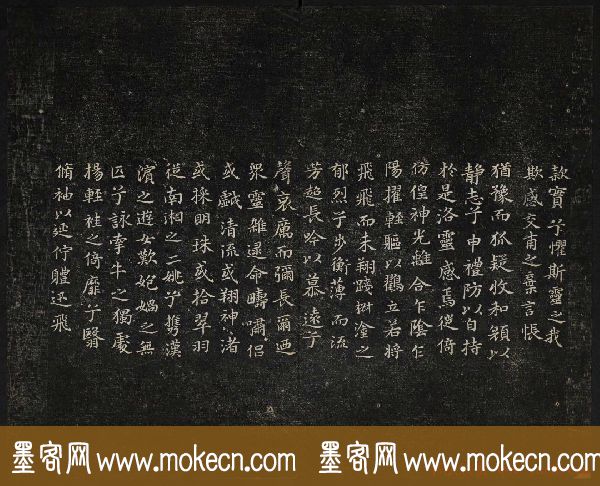 款實兮懼斯靈之我
欺感交甫之棄言悵
猶豫而狐疑收和顏以
靜志兮申禮防以自持
於是洛靈感焉徙倚
彷徨神光離合乍陰乍
陽擢輕軀以鶴立若將
飛飛而未翔踐椒塗之
郁烈兮步衡薄而流
芳超長吟以慕遠兮
聲哀厲而彌長爾迺
眾靈雜遝命疇嘯侶
或戲清流或翔神渚
或採明珠或拾翠羽
從南湘之二姚兮攜漢
濱之遊女歎妃媧之無
匹兮詠牽牛之獨處
揚輕袿之倚靡兮翳
脩袖以延佇體迅飛
墨客网 www.mokecn.com 墨客网 www.mokecn.com